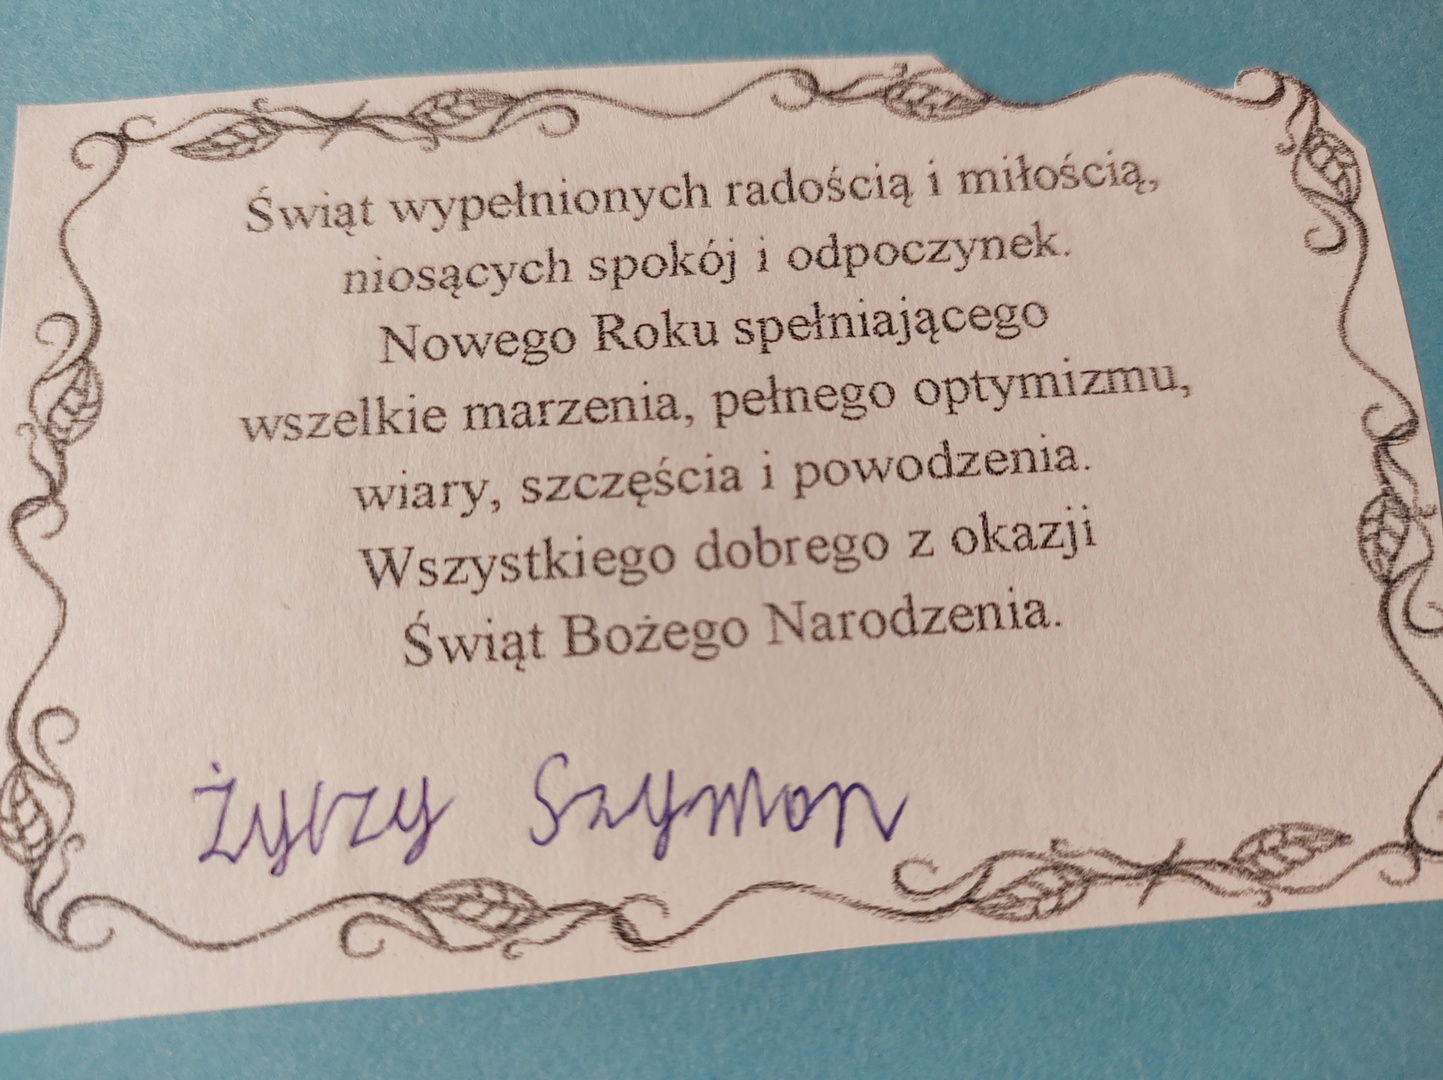 Świąt wypełnionych radością i miłością,
niosących spokój i odpoczynek.
Nowego Roku spełniającego
wszelkie marzenia, pełnego optymizmu,
wiary, szczęścia i powodzenia.
Wszystkiego dobrego z okazji
Świąt Bożego Narodzenia.
Życzy Szymon